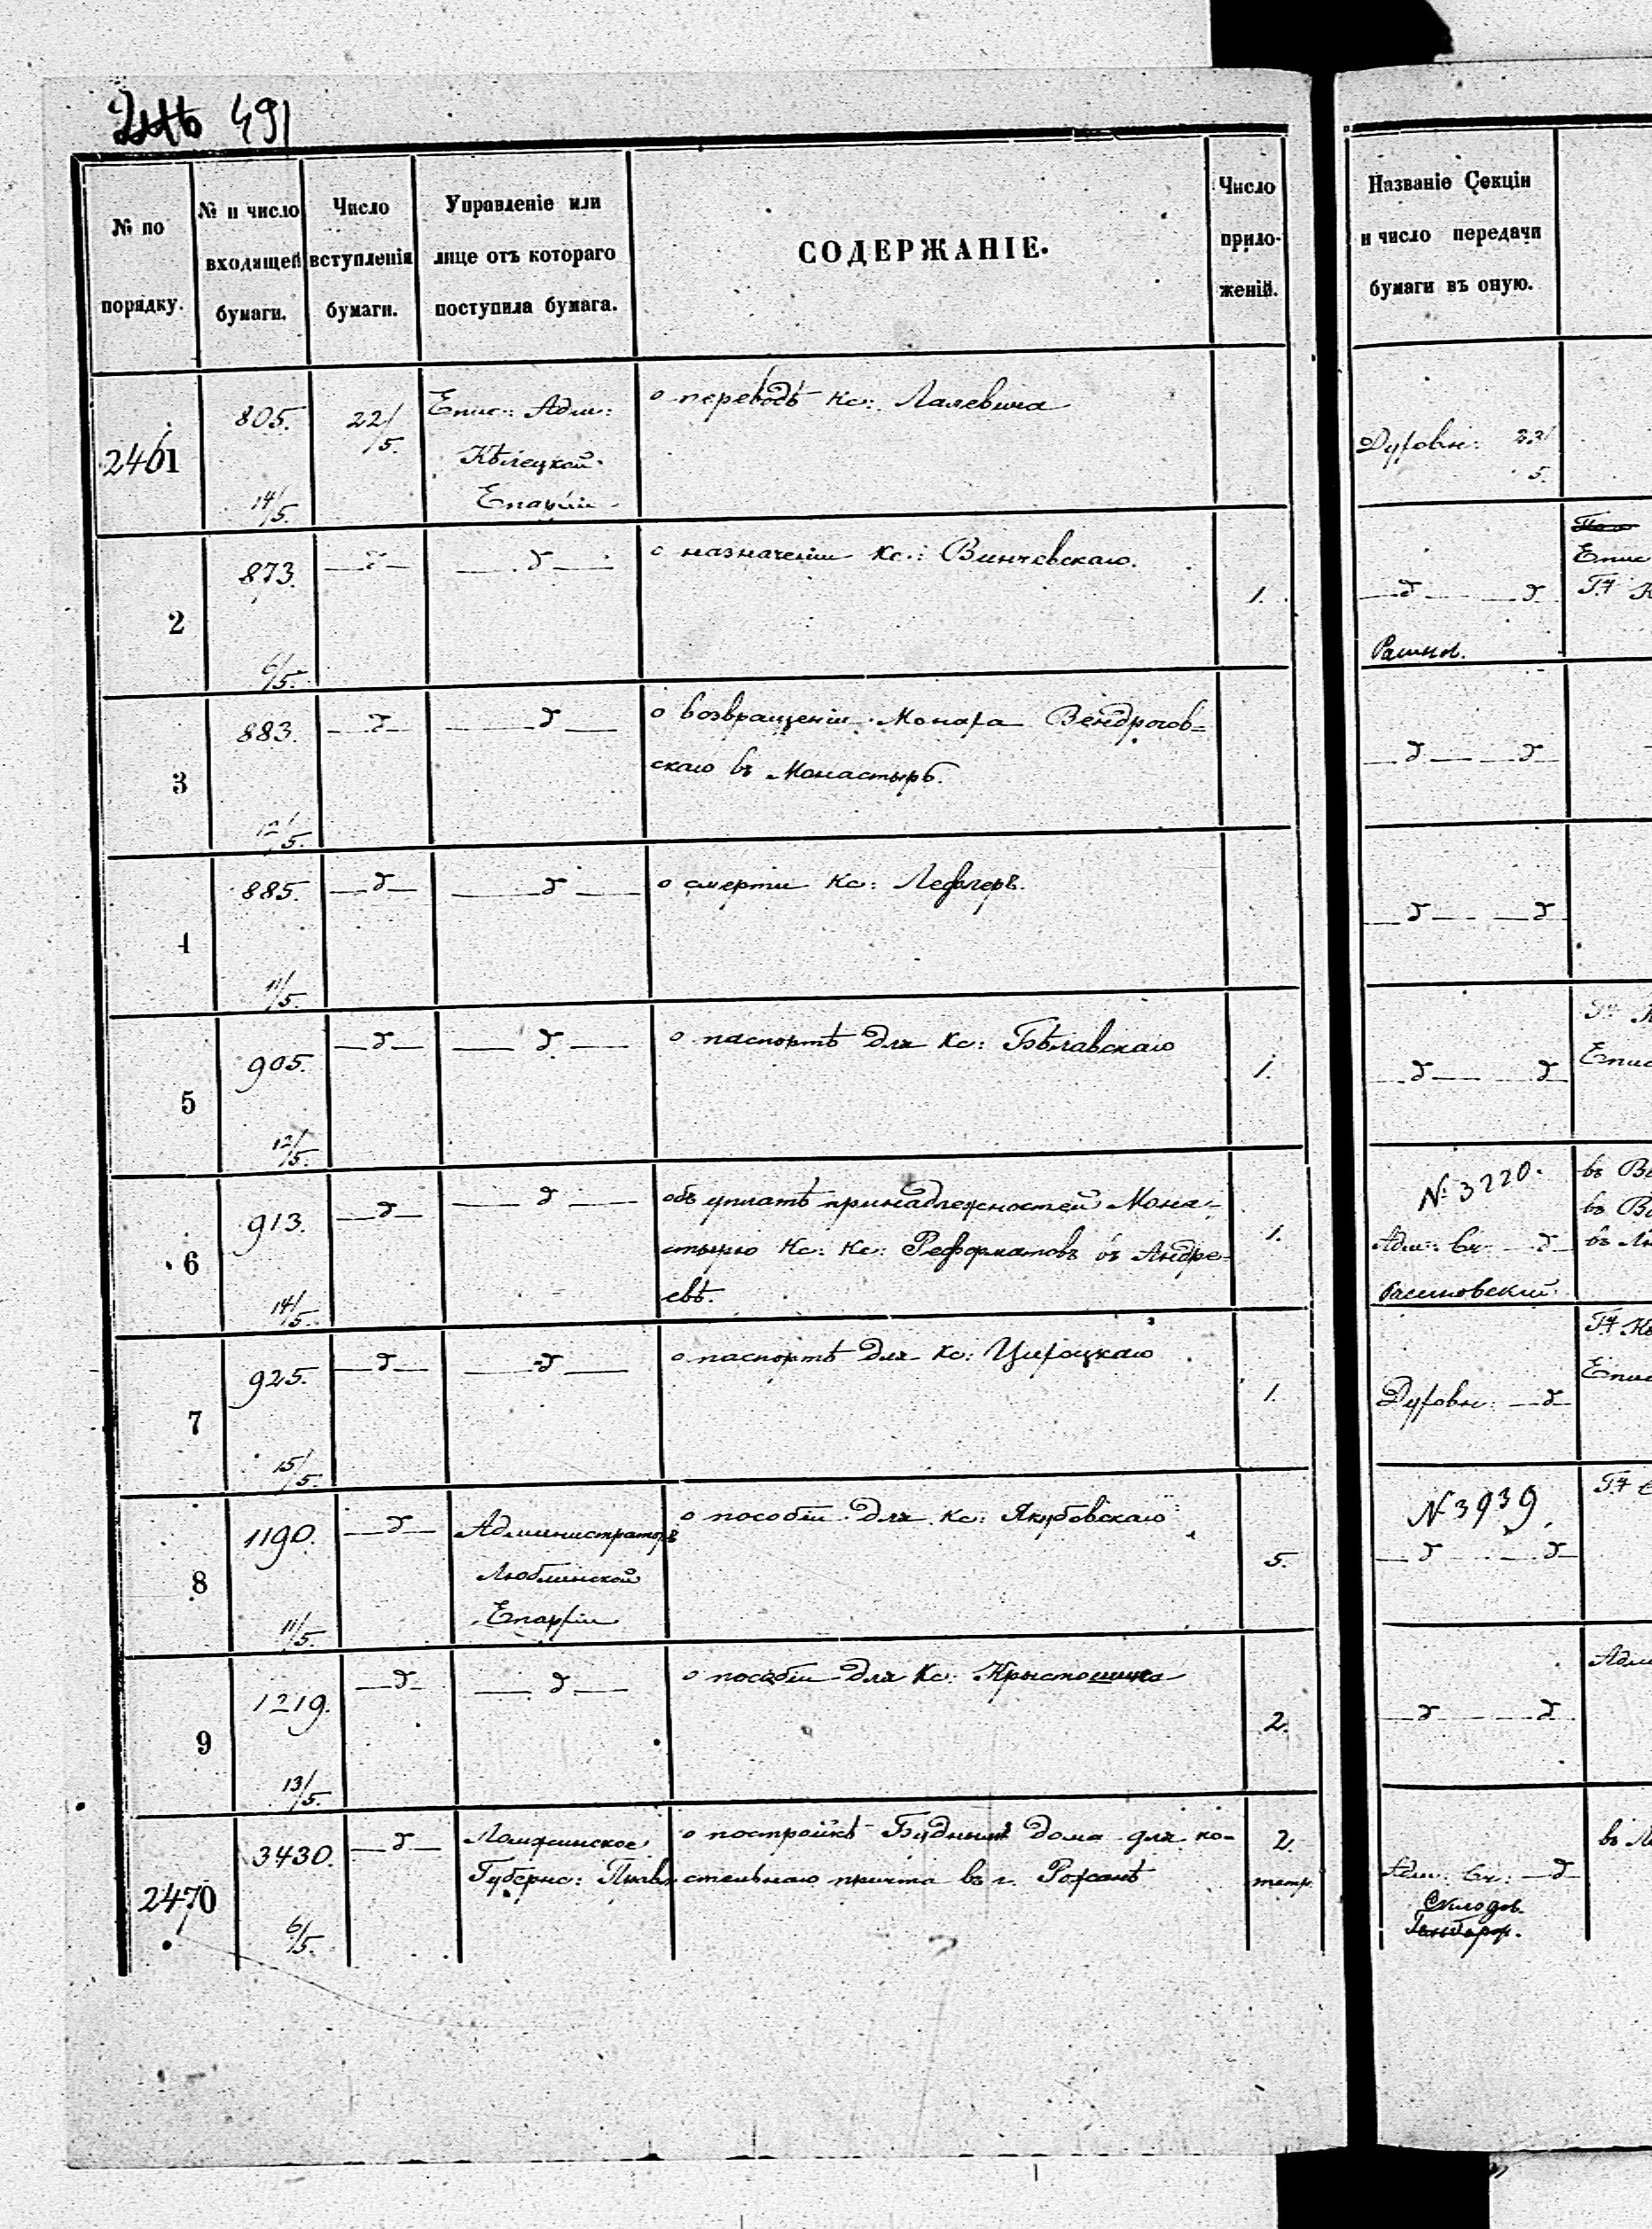 491
№ по порядку.
№ и число входящей бумаги.
Число вступленія бумаги.
Управленіе или лице отъ котораго поступила бумага.
СОДЕРЖАНІЕ.
Число прило- женій.
Названіе Секціи и число передачи бумаги въ оную.
2461
805.
14/5.
22/5.
Епис: Адм:
Кѣлецкой
Епархіи
о переводѣ Кс: Лалевича
Духовн: 22/5.
2
873.
6/5.
— д —
— д —
о назначеніи Кс: Винчевскаго.
1.
— д — — д
Епис
3
883.
12/5.
— д —
— д —
о возвращеніи Монаха Вендрогов=
скаго въ Монастырь.
— д — — д
4
885.
11/5.
— д —
— д —
о смерти Кс: Лефлеръ.
— д — — д
5
905.
12/5.
— д —
— д —
о паспортѣ для Кс: Бѣлавскаго
1.
— д — — д
Епис
6
913.
14/5.
— д —
— д —
объ уплатѣ принадлежностей Мона-
стырю Кс: Кс: Реформатовъ въ Андре-
евѣ.
1.
№ 3220.
Адм: Сч: — д
7
925.
15/5.
— д —
— д —
о паспортѣ для Кс: Цихоцкаго
1.
Духовн: — д
8
1190.
11/5.
— д —
Администраторъ
Люблинской
Епархіи
о пособіи для Кс: Якубовскаго
5.
№ 3939.
— д — — д
9
1219.
13/5.
— д —
— д —
о пособіи для Кс: Крыстошика
2.
— д — — д
2470
3430.
6/5.
— д —
Ломжинское
Губернс: Правл
о постройкѣ дома для ко-
стельнаго причта въ г. Рожанѣ
2.
тетр.
Адм: Сч: — д